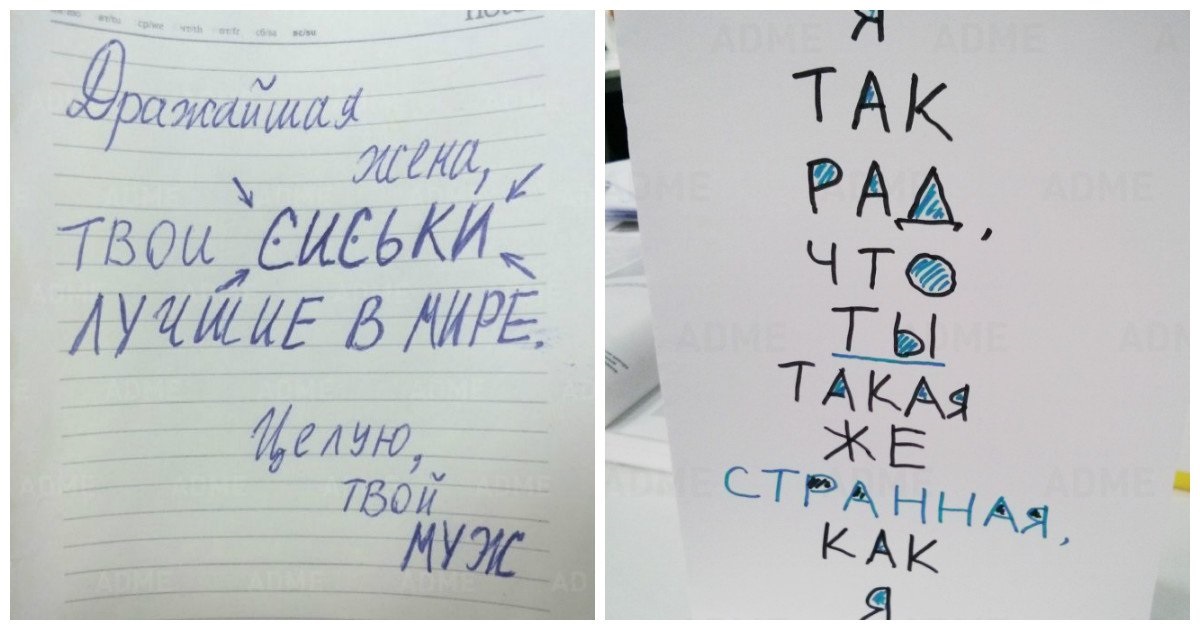 Дражайшая
жена,
ТВОИ СИСЬКИ
ЛУЧШИЕ В МИРЕ.
Целую,
ТВОЙ
МУЖ
Я
ТАК
РАД,
ЧТО
ТЫ
ТАКАЯ
ЖЕ
СТРАННАЯ,
КАК
Я
ADME